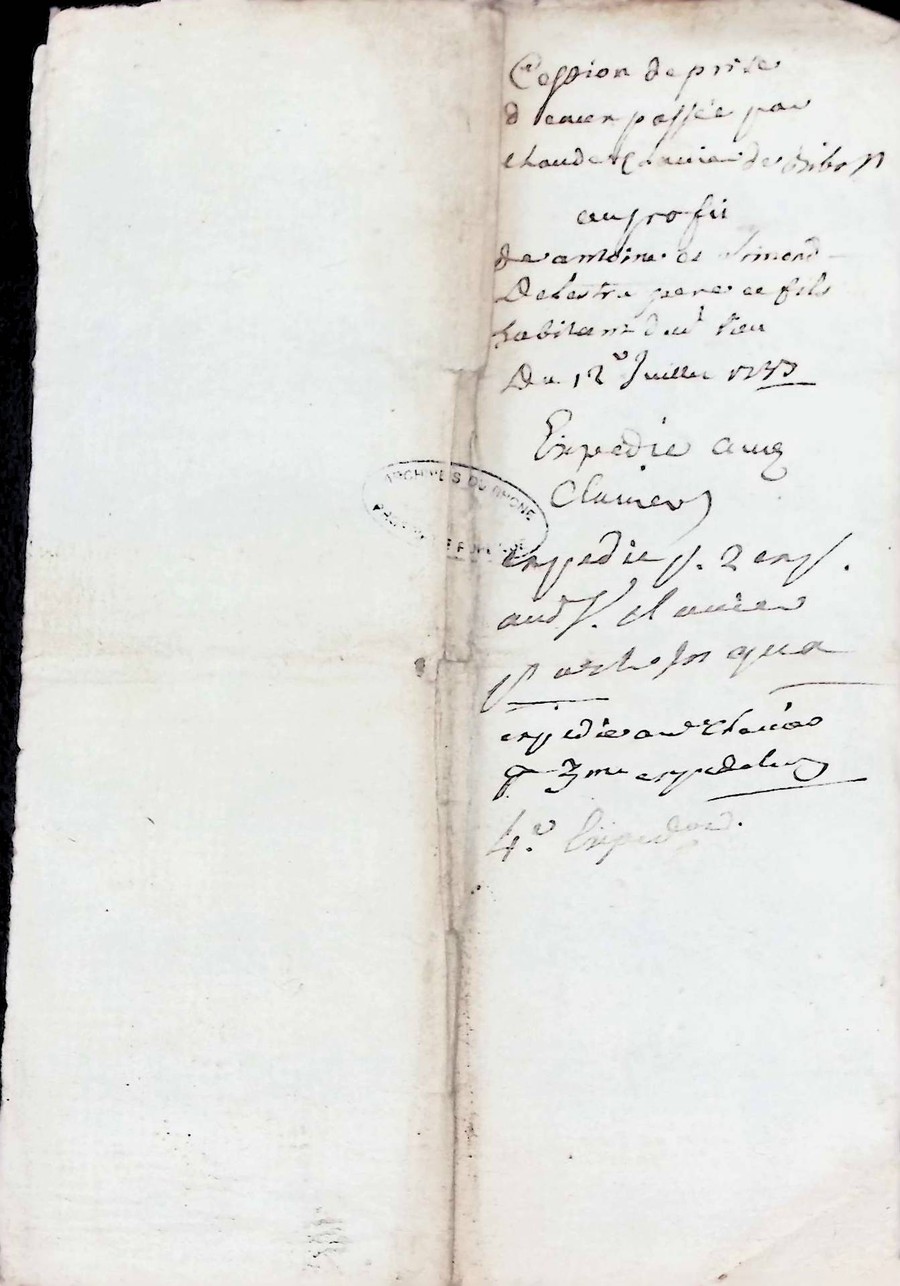 Cession de prise
d'eaux passée par
claude Clavier de Ribost
au profit
de antoine et Simond
Delestra pere et fils
habitant dud. lieu
Du 12e Juillet
Expedié aud
Clavier
expedié p. 2 exp.
aud Sr. clavier
expedié aud clavier
pr 3me exped
4e Exped
ARCHIVES DU RHONE